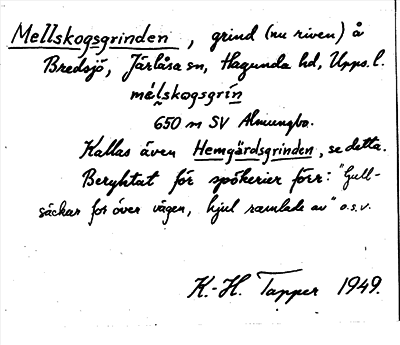 Mellskogsgrinden, grind (nu riven) å
Bredsjö, Järlåsa sn, Hagunda hd, Upps. l.
mélskogsgrín
650 m SV Almungbo.
Kallas även Hemgärdsgrinden, se detta.
Beryktat för spökerier förr: "Gull-
säckar for över vägen, hjul ramlade av" o.s.v.
K.-H. Tapper 1949.